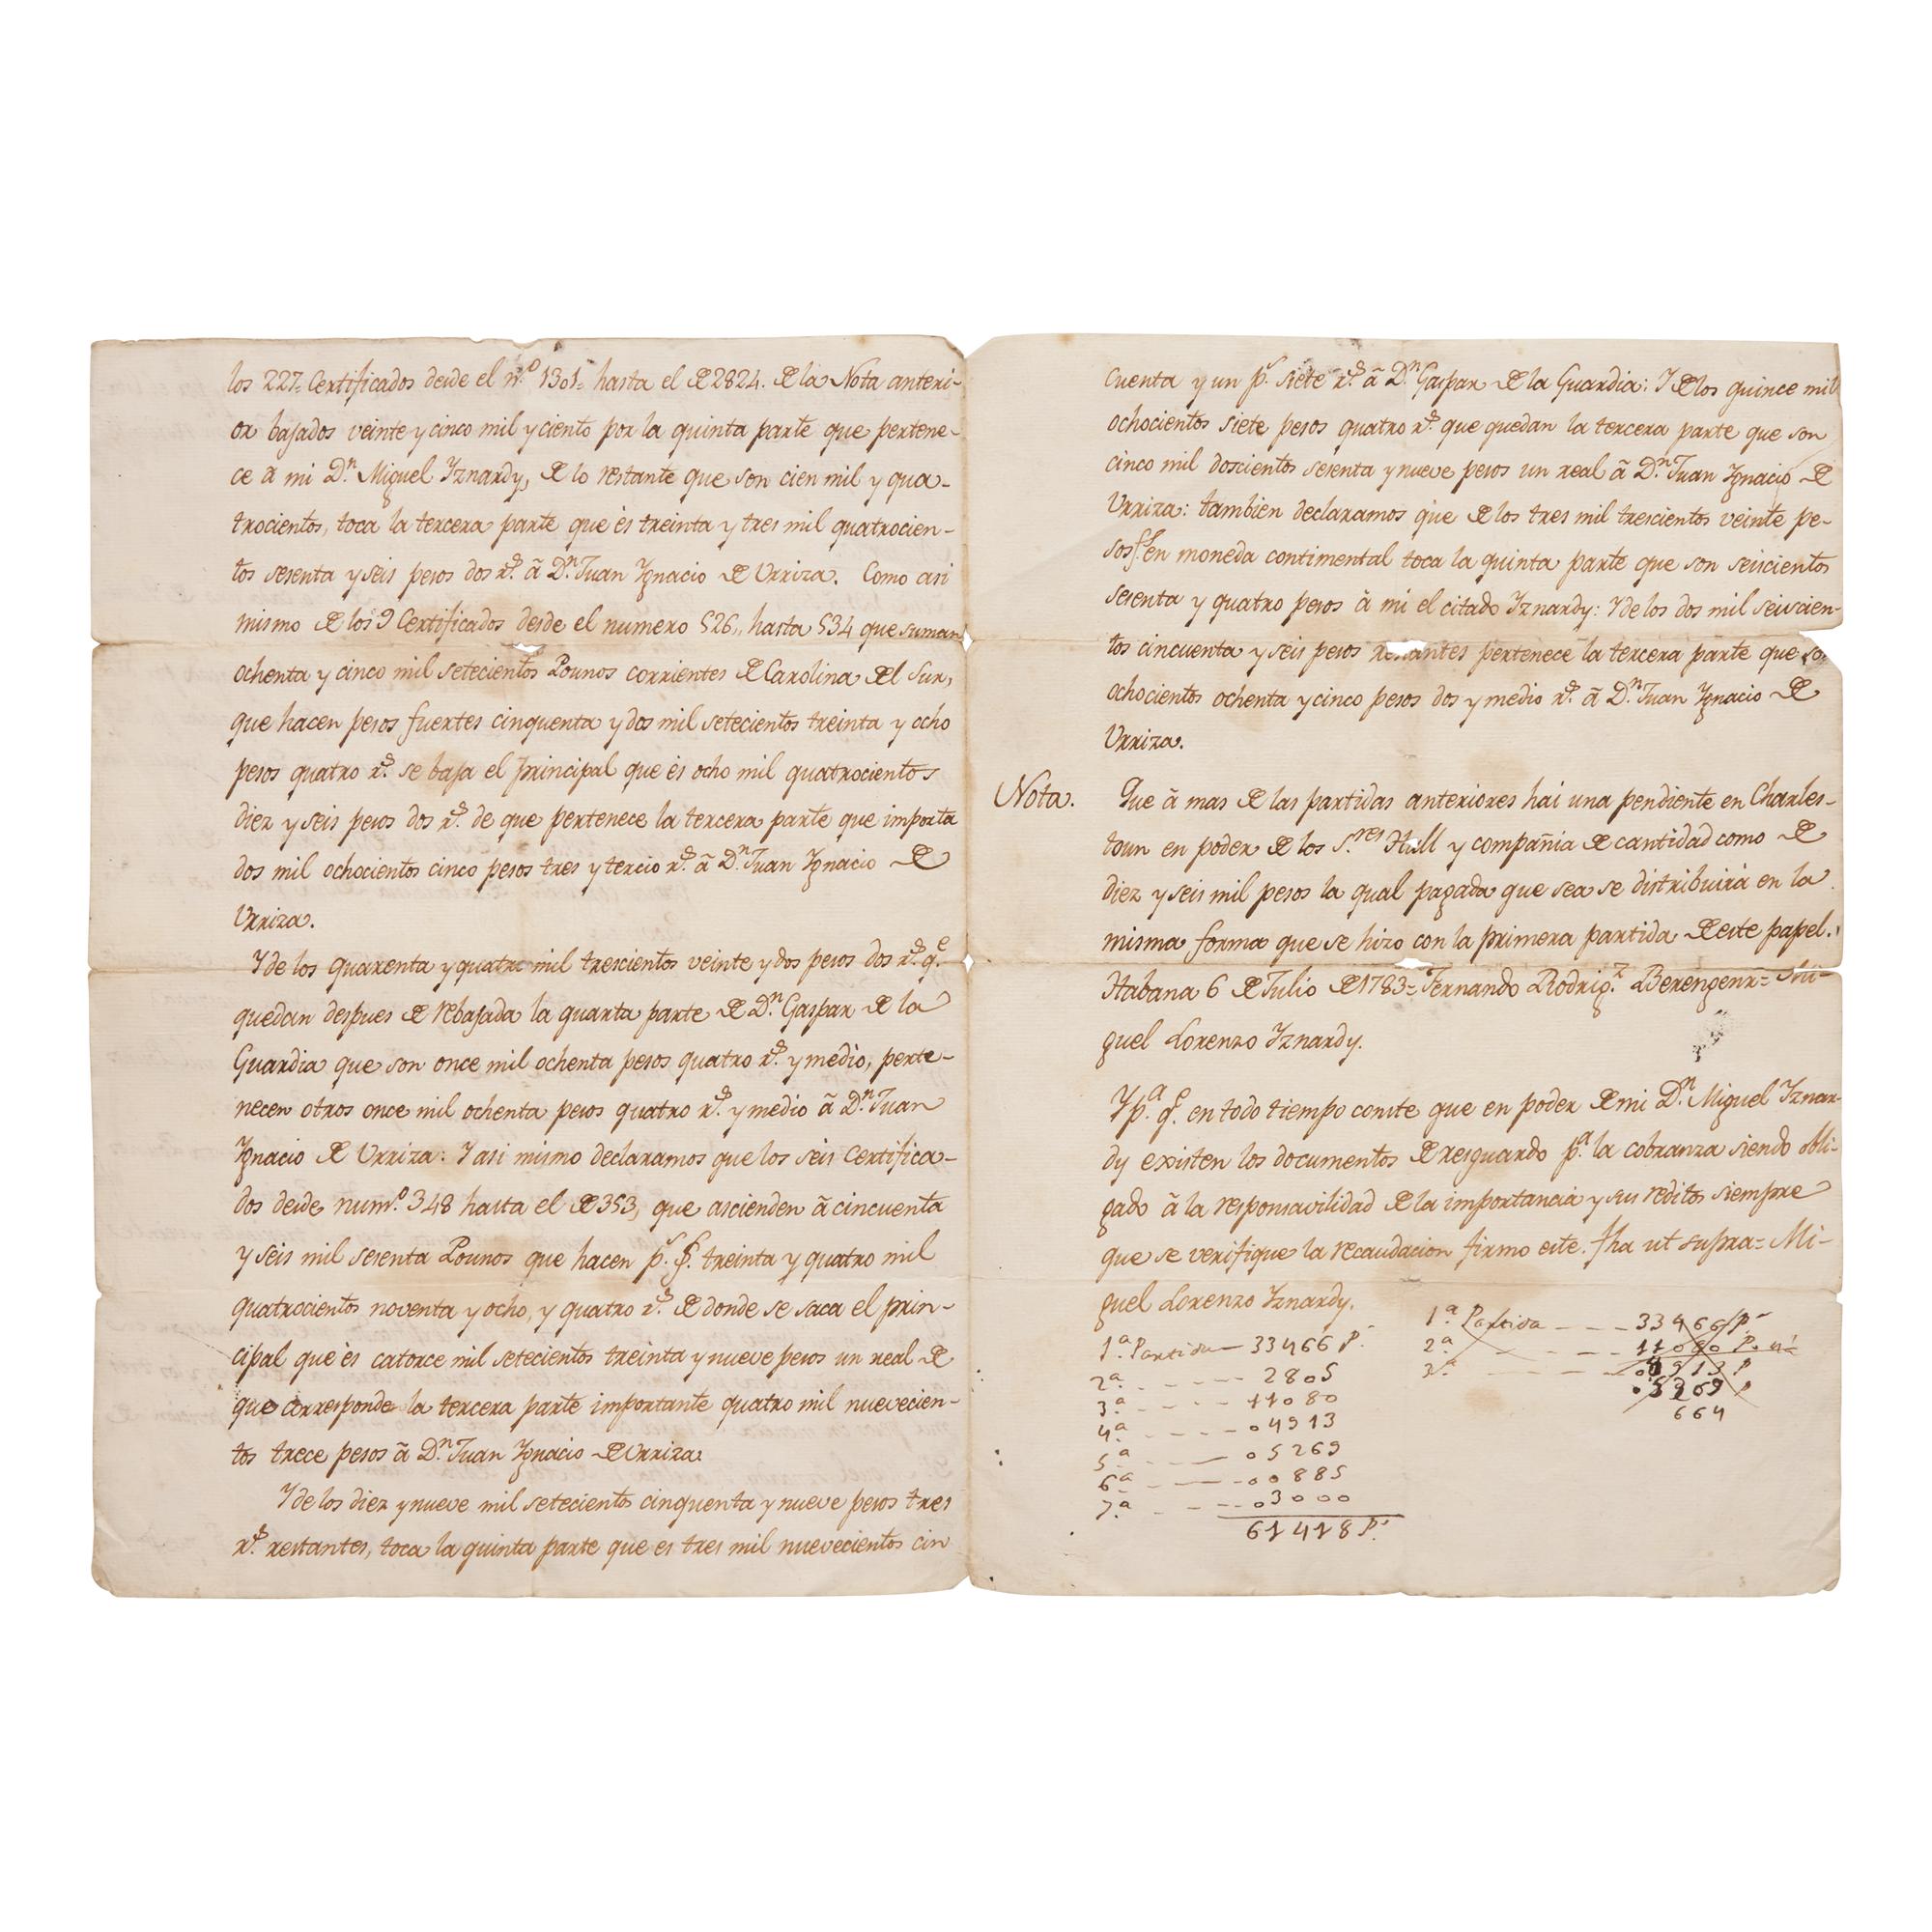 los 227= Certificados desde el n.º 1301= hasta el de 2824. de la Nota anteri-
or bajados veinte y cinco mil y ciento por la quinta parte que pertene-
ce a mi Dn. Miguel Yznardy, de lo restante que son cien mil y qua-
trocientos, toca la tercera parte que és treinta y tres mil quatrocien-
tos sesenta y seis pesos dos rs. â Dn. Juan Ygnacio de Urriza. Como asi
mismo de los 9 Certificados desde el numero 526,, hasta 534 que suman
ochenta y cinco mil setecientos Pounos corrientes de Carolina del Sur,
que hacen pesos fuertes cinquenta y dos mil setecientos treinta y ocho
pesos quatro rs. se baja el principal que és ocho mil quatrocientos
diez y seis pesos dos rs. de que pertenece la tercera parte que importa
dos mil ochocientos cinco pesos tres y tercio rs. â Dn. Juan Ygnacio de
Urriza.
Y de los quarenta y quatro mil trescientos veinte y dos pesos dos rs. qe.
quedan despues de rebajada la quarta parte de Dn. Gaspar de la
Guardia que son once mil ochenta pesos quatro rs. y medio, perte-
necen otros once mil ochenta pesos quatro rs. y medio â Dn. Juan
Ygnacio de Urriza: Y asi mismo declaramos que los seis Certifica-
dos desde numº. 348 hasta el de 353, que ascienden â cincuenta
y seis mil sesenta Pounos que hacen ps. fs. treinta y quatro mil
quatrocientos noventa y ocho, y quatro rs. de donde se saca el prin-
cipal que és catorce mil setecientos treinta y nueve pesos un real de
que corresponde la tercera parte importante quatro mil nuevecien-
tos trece pesos â Dn. Juan Ygnacio de Urriza
Y de los diez y nueve mil setecientos cinquenta y nueve pesos tres
rs. restantes, toca la quinta parte que es tres mil nuevecientos cin
cuenta y un ps. siete rs. â Dn. Gaspar de la Guardia: Y de los quince mil
ochocientos siete pesos quatro rs. que quedan la tercera parte que son
cinco mil doscientos sesenta y nueve pesos un real â Dn. Juan Ygnacio de
Urriza: tambien declaramos que de los tres mil trescientos veinte pe-
sos fs. en moneda contimental toca la quinta parte que son seiscientos
sesenta y quatro pesos â mi el citado Yznardy: Y de los dos mil seiscien-
tos cincuenta y seis pesos restantes pertenece la tercera parte que son
ochocientos ochenta y cinco pesos dos y medio rs. â Dn. Juan Ygnacio de
Urriza.
Nota. Que â mas de las partidas anteriores hai una pendiente en Charles-
toun en poder de los S.res Hull y compañia de cantidad como de
diez y seis mil pesos la qual pagada que sea se distribuirá en la
misma forma que se hizo con la primera partida de este papel.
Habana 6 de Julio de 1783= Fernando Rodrigz. Berengenr= Mi-
guel Lorenzo Yznardy.
Y pa. qe. en todo tiempo conste que en poder de mi Dn. Miguel Yznar-
dy existen los documentos de resguardo pa. la cobranza siendo obli-
gado â la responsavilidad de la importancia y sus reditos siempre
que se verifique la recaudacion firmo este. fha ut supra= Mi-
guel Lorenzo Yznardy.
1.ª Partida — 33466 Ps.
2.ª - - - - - 2805
3.ª - - - - 11080
4.ª - - - - - 04913
5.ª - - - — 05269
6.ª - - — - 00885
7.ª - - - - 03000
61418 Ps.
1.ª Partida - - - - 33466 Ps
2.ª - - - - 11080 P.
3.ª - - - - 04913 P
05269 P
664